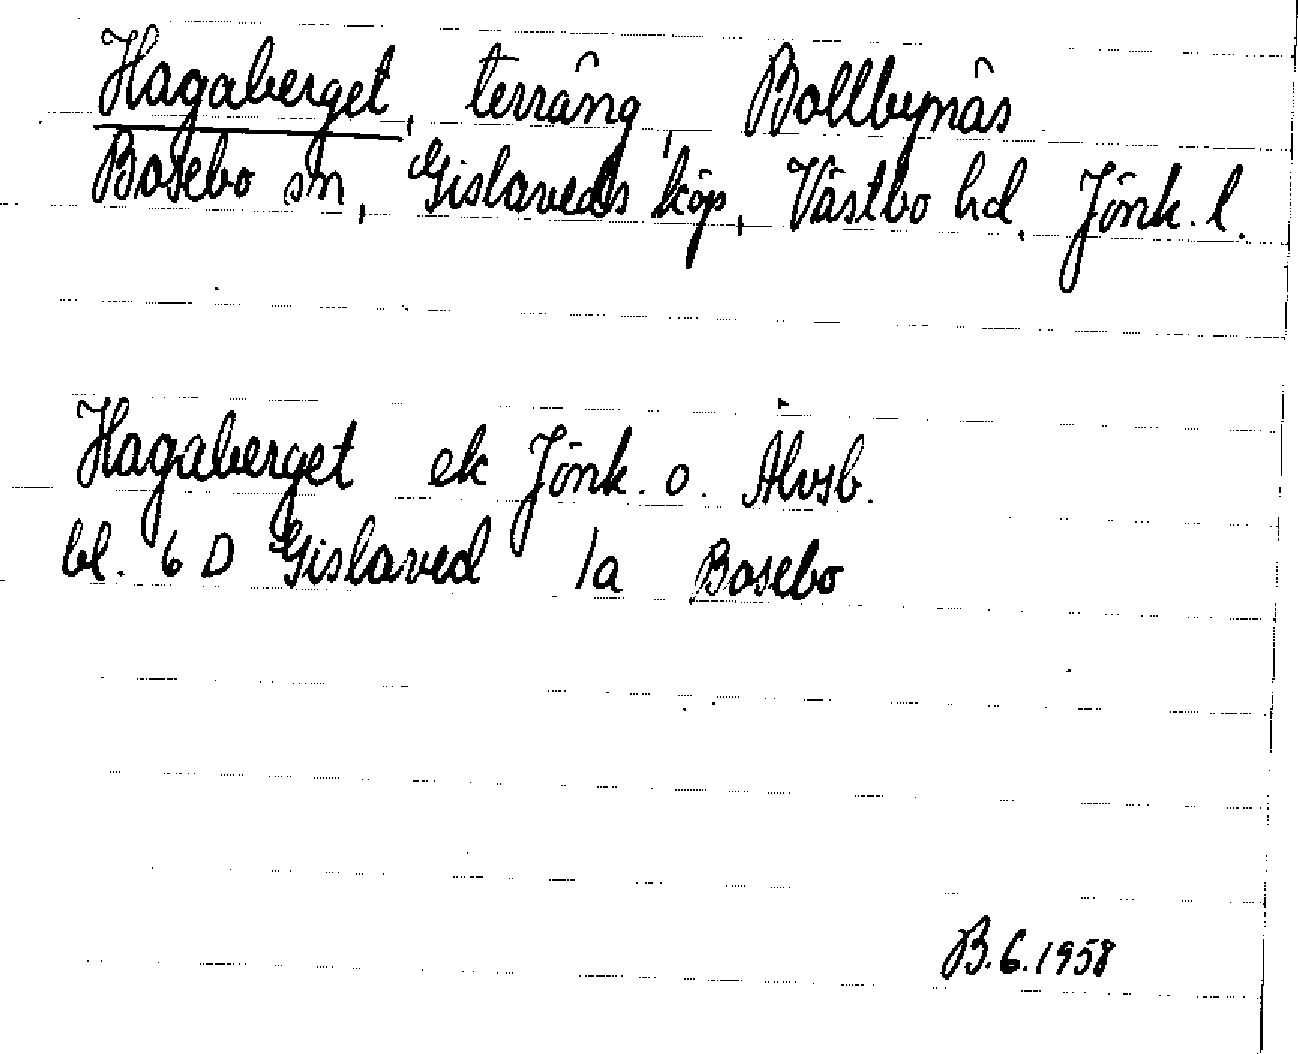 Hagaberget, terräng, Bollbynäs
Bosebo sn, Gislaveds köp, Västbo hd, Jönk. l.
Hagaberget ek Jönk. o. Älvsb.
bl. 6 D Gislaved 1a Bosebo
B.G.1958